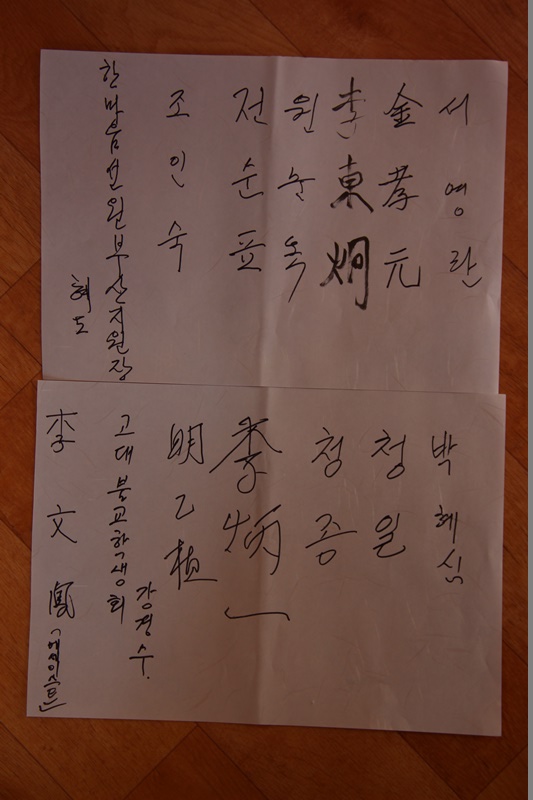 서영란
金孝元
李東炯
전순표
조인숙
한마음선원부산지원장
혜도
박혜심
청일
청종
李炳一
明乙植
고대불교학생회
강경수.
李文鳳